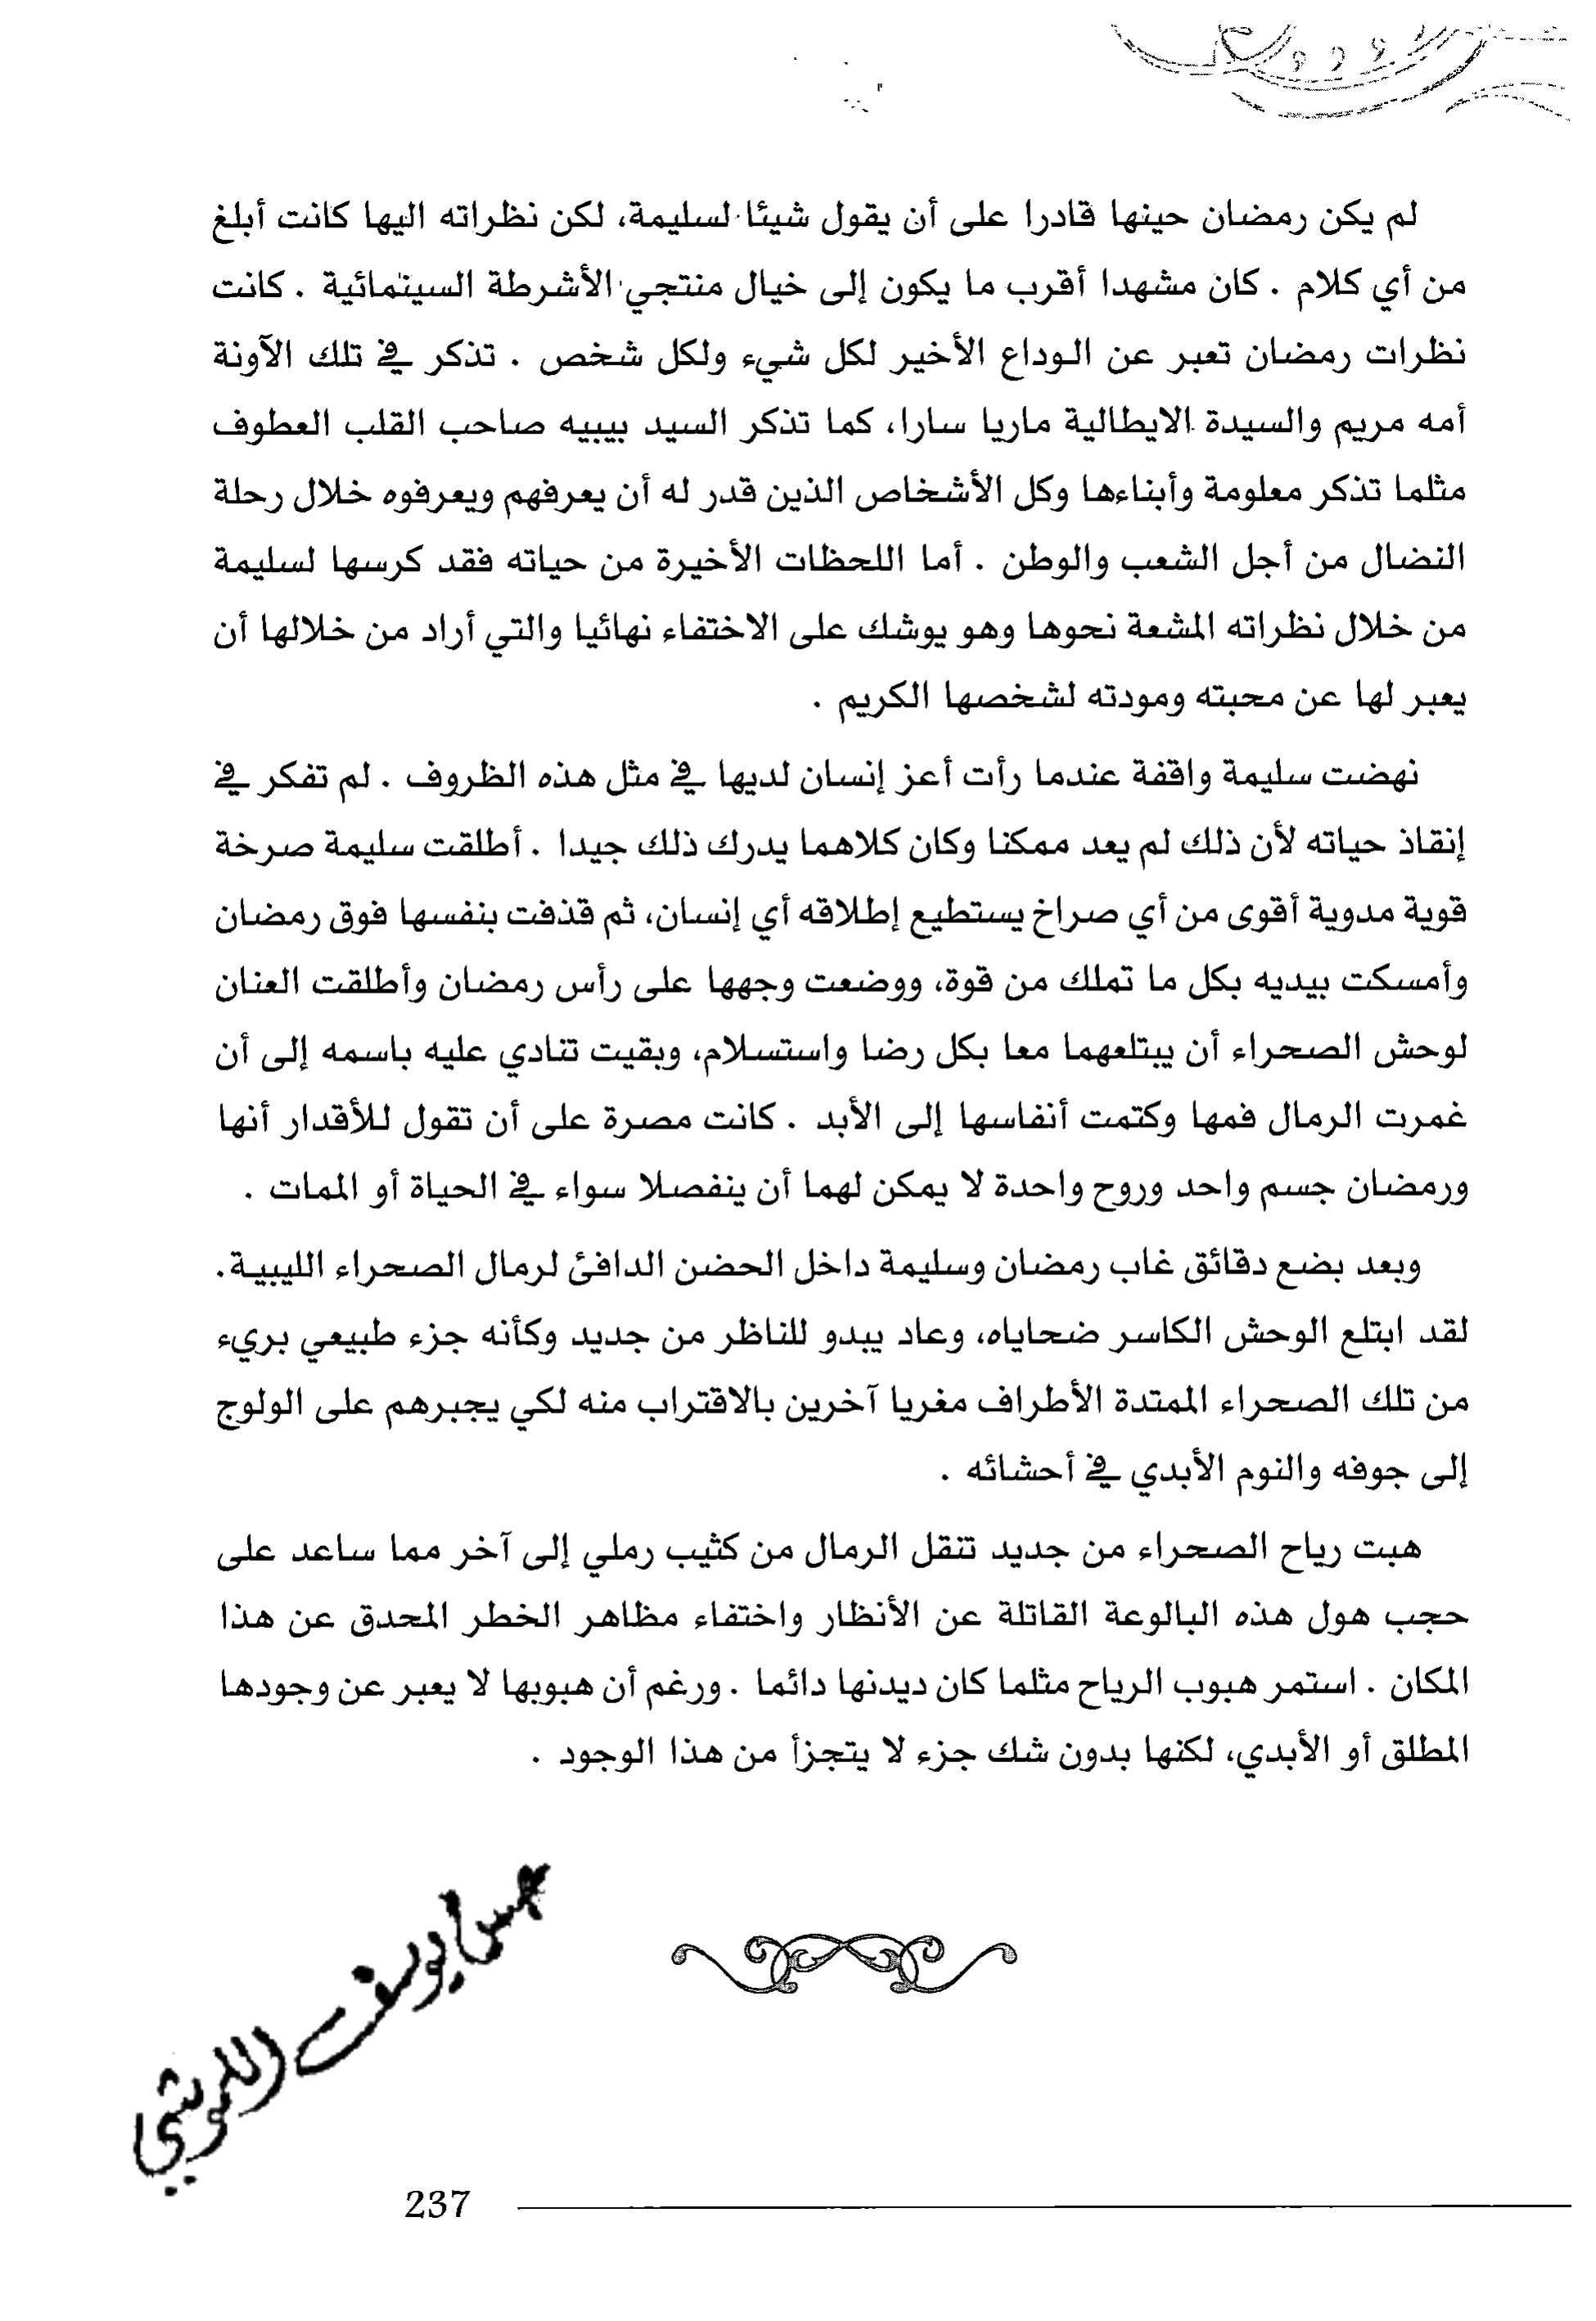 لم يكن رمضان حينها قادرا على أن يقول شيئا لسليمة، لكن نظراته اليها كانت أبلغ
من أي كلام . كان مشهدا أقرب ما يكون إلى خيال منتجي الأشرطة السينمائية . كانت
نظرات رمضان تعبر عن الوداع الأخير لكل شيء ولكل شخص . تذكر في تلك الآونة
أمه مريم والسيدة الايطالية ماريا سارا، كما تذكر السيد بيبيه صاحب القلب العطوف
مثلما تذكر معلومة وأبناءها وكل الأشخاص الذين قدر له أن يعرفهم ويعرفوه خلال رحلة
النضال من أجل الشعب والوطن . أما اللحظات الأخيرة من حياته فقد كرسها لسليمة
من خلال نظراته المشعة نحوها وهو يوشك على الاختفاء نهائيا والتي أراد من خلالها أن
يعبر لها عن محبته ومودته لشخصها الكريم .
نهضت سليمة واقفة عندما رأت أعز إنسان لديها في مثل هذه الظروف . لم تفكر في
إنقاذ حياته لأن ذلك لم يعد ممكنا وكان كلاهما يدرك ذلك جيدا . أطلقت سليمة صرخة
قوية مدوية أقوى من أي صراخ يستطيع إطلاقه أي إنسان، ثم قذفت بنفسها فوق رمضان
وأمسكت بيديه بكل ما تملك من قوة، ووضعت وجهها على رأس رمضان وأطلقت العنان
لوحش الصحراء أن يبتلعهما معا بكل رضا واستسلام، وبقيت تنادي عليه باسمه إلى أن
غمرت الرمال فمها وكتمت أنفاسها إلى الأبد . كانت مصرة على أن تقول للأقدار أنها
ورمضان جسم واحد وروح واحدة لا يمكن لهما أن ينفصلا سواء في الحياة أو الممات .
وبعد بضع دقائق غاب رمضان وسليمة داخل الحضن الدافئ لرمال الصحراء الليبية.
لقد ابتلع الوحش الكاسر ضحاياه، وعاد يبدو للناظر من جديد وكأنه جزء طبيعي بريء
من تلك الصحراء الممتدة الأطراف مغريا آخرين بالاقتراب منه لكي يجبرهم على الولوج
إلى جوفه والنوم الأبدي في أحشائه .
هبت رياح الصحراء من جديد تنقل الرمال من كثيب رملي إلى آخر مما ساعد على
حجب هول هذه البالوعة القاتلة عن الأنظار واختفاء مظاهر الخطر المحدق عن هذا
المكان . استمر هبوب الرياح مثلما كان ديدنها دائما . ورغم أن هبوبها لا يعبر عن وجودها
المطلق أو الأبدي، لكنها بدون شك جزء لا يتجزأ من هذا الوجود .
يوسف
237